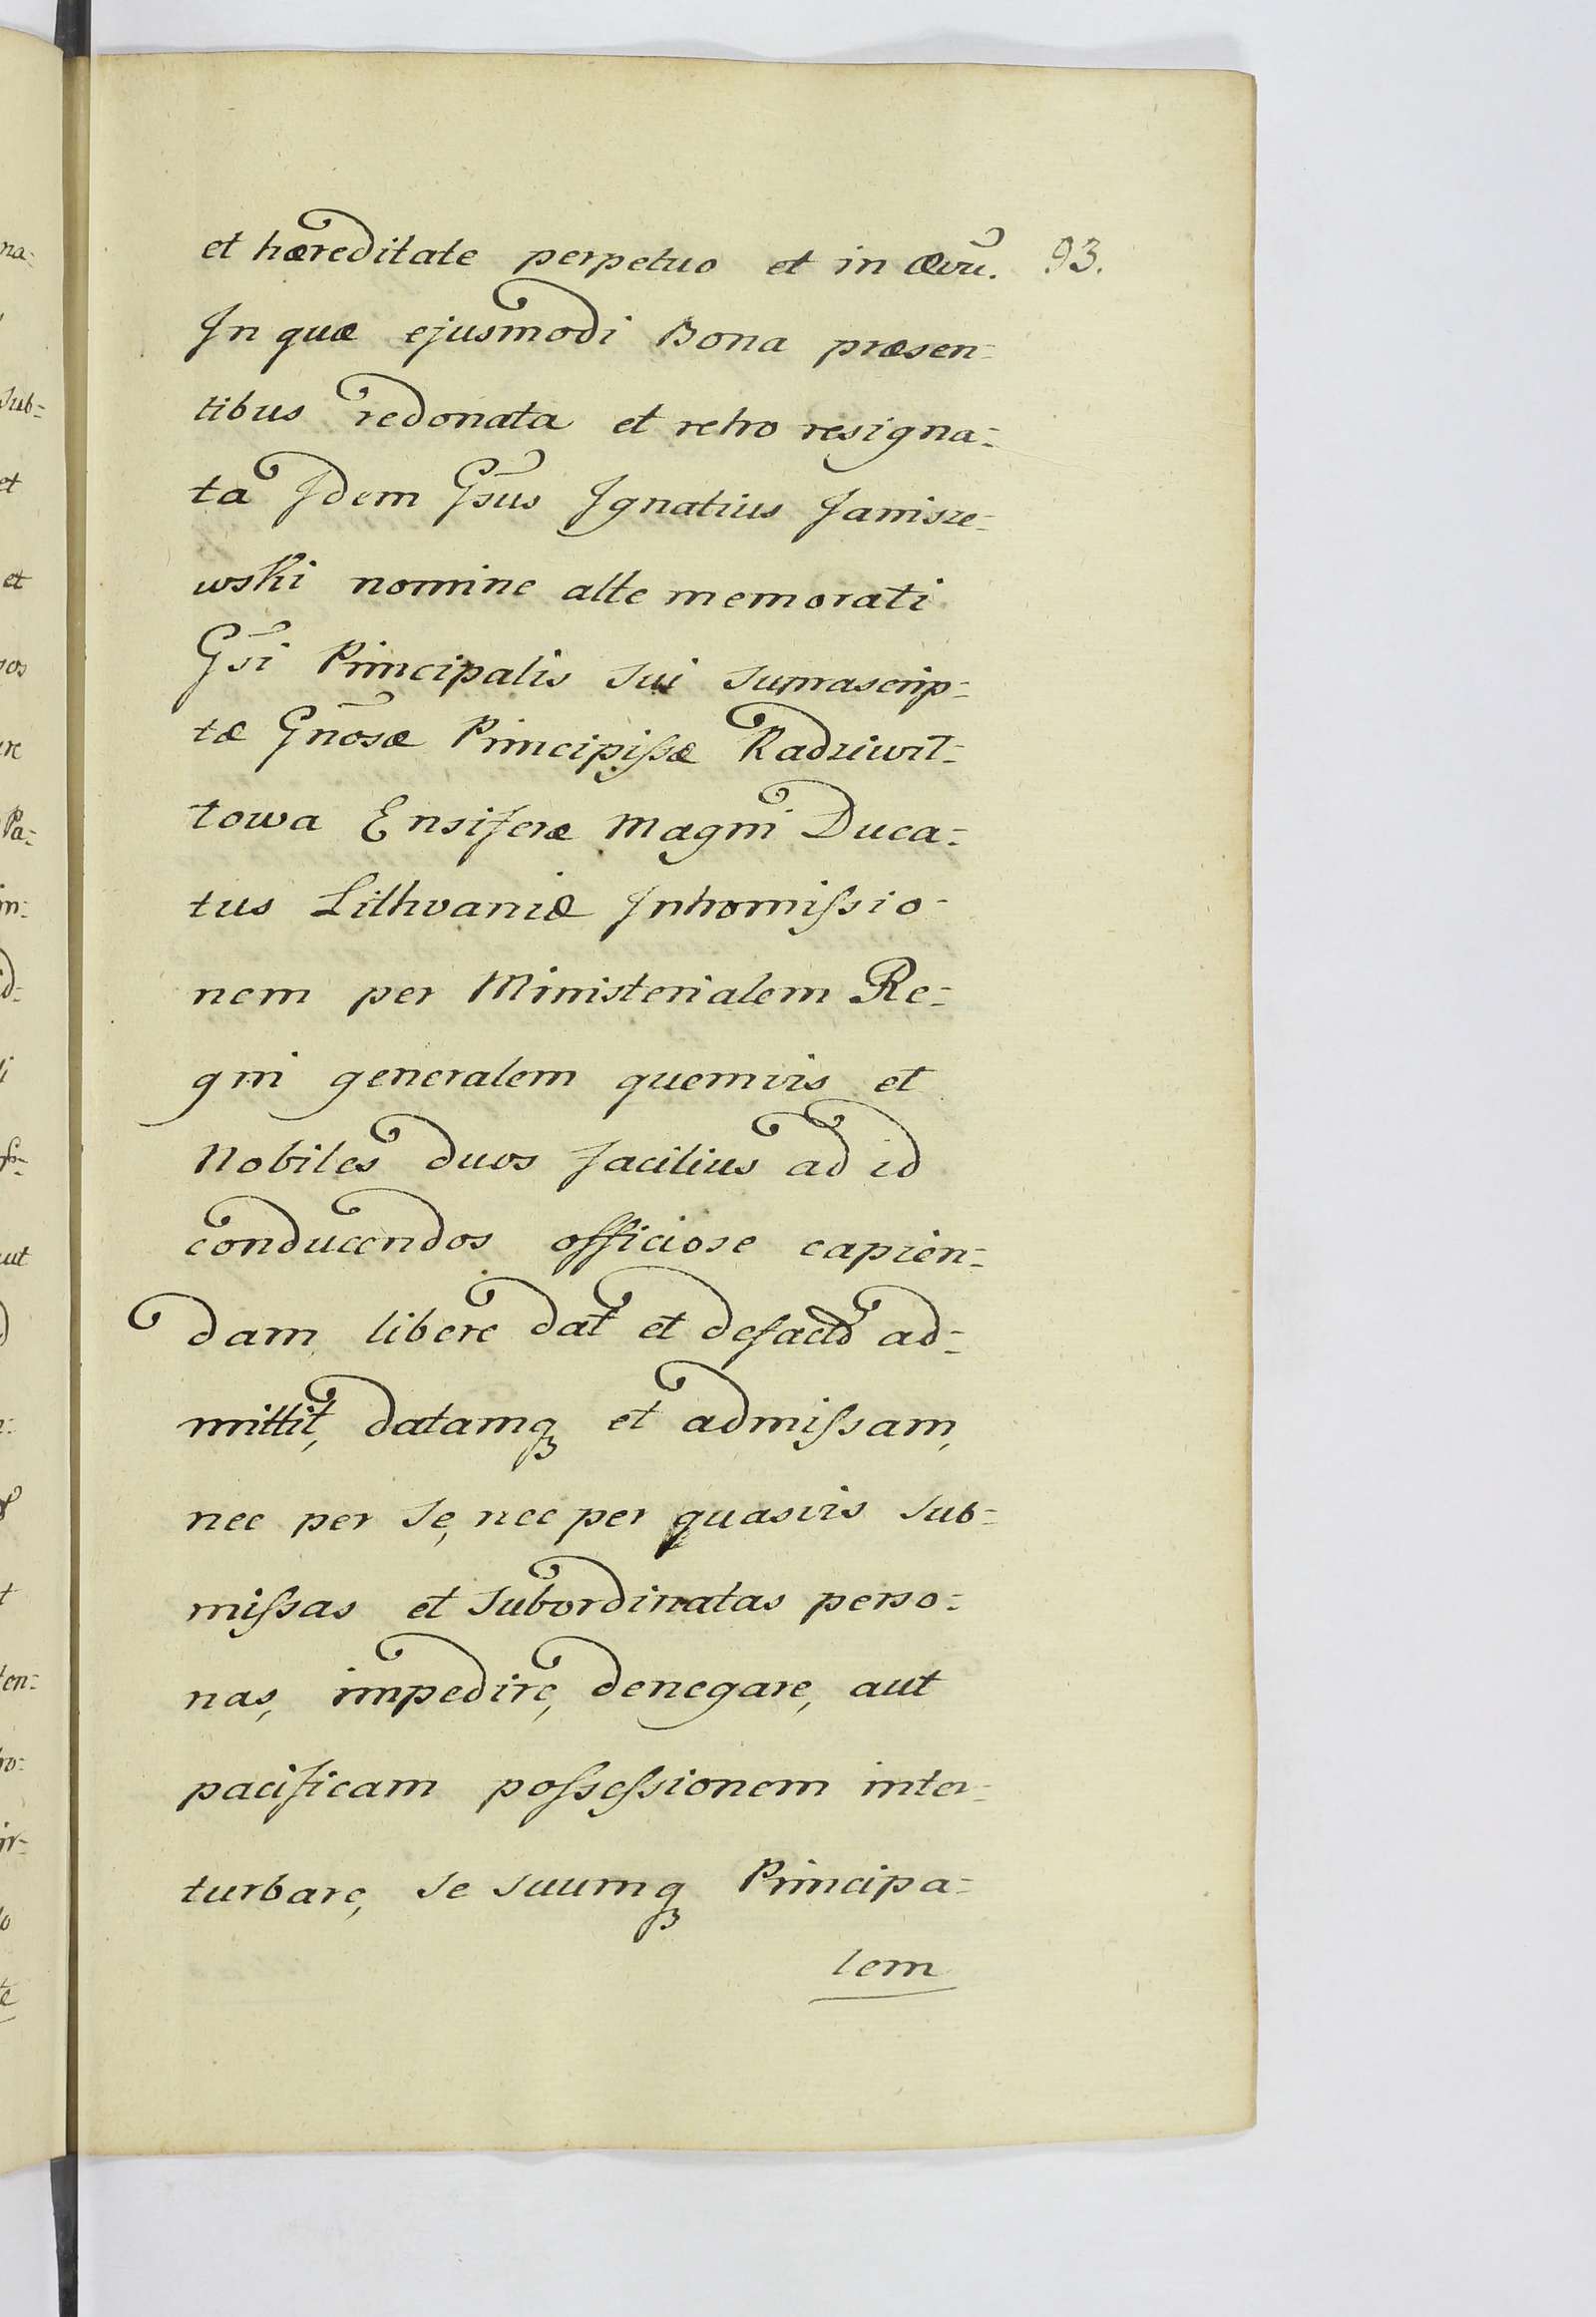 et hæreditate perpetuo et in ævū. 93.
In quæ ejusmodi Bona præsen=
tibus redonata et retro resigna=
ta Idem Gsus Ignatius Janisze=
wski nomine alte memorati
Gsi Principalis sui suprascrip=
tæ Gnosæ Principissæ Radziwil=
łowa Ensiferæ Magni Duca=
tus Lithvaniæ Intromissio=
nem per Ministerialem Re=
gni generalem quemvis et
Nobiles duos facilius ad id
conducendos officiose capien=
dam libere dat et defacto ad=
mittit, datamq; et admissam,
nec per se, nec per quasvis sub=
missas et subordinatas perso=
nas, impedire, denegare, aut
pacificam possessionem inter=
turbare, se suumq; Principa=
lem
na=
sub=
et
et
sos
re
Pa=
in=
id=
li
ss=
aut
ten=
ro=
ir=